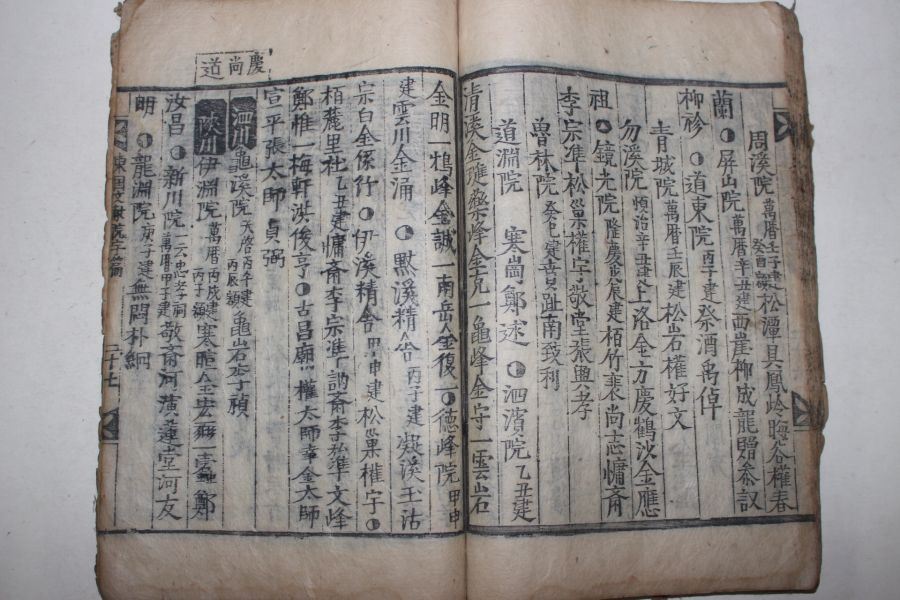 周溪院萬曆壬子建癸酉額松潭具鳳岭晦谷權春
蘭●屏山院萬曆辛丑建西崖柳成龍贈參議
柳袗○道東院丙子建祭酒禹倬
青城院萬曆壬辰建松岩權好文
勿溪院順治辛丑建上洛金方慶鶴沙金應
祖●鏡光院隆慶建栢竹裵尚志慵齋
李宗準松巢權宇敬堂張興孝
魯林院癸巳建賁趾南致利
道淵院 寒岡鄭逑○泗濱院乙丑建
青溪金璡藥峰金克一龜峰金守一雲岩
金明一鶴峰金誠一南岳金復一○德峰院甲申
建雲川金涌○默溪精舍丙子建凝溪玉沽
宗白金係行○伊溪精舍甲申建松巢權宇○
栢麓里社乙丑建慵齋李宗準訥齋李弘準文峰
鄭惟一梅軒洪俊亨○古昌廟權太師幸金太師
宣平張太師貞弼
慶尚道
泗川龜溪院天啓丙午建丙辰額龜岩李楨
陜川伊淵院萬曆丙戌建丙子額寒暄金宏弼一蠹鄭
汝昌○新川院一云忠孝祠萬曆甲子建敬齋河演蓮堂河友
明○龍淵院庚子建無悶朴絪
二十七